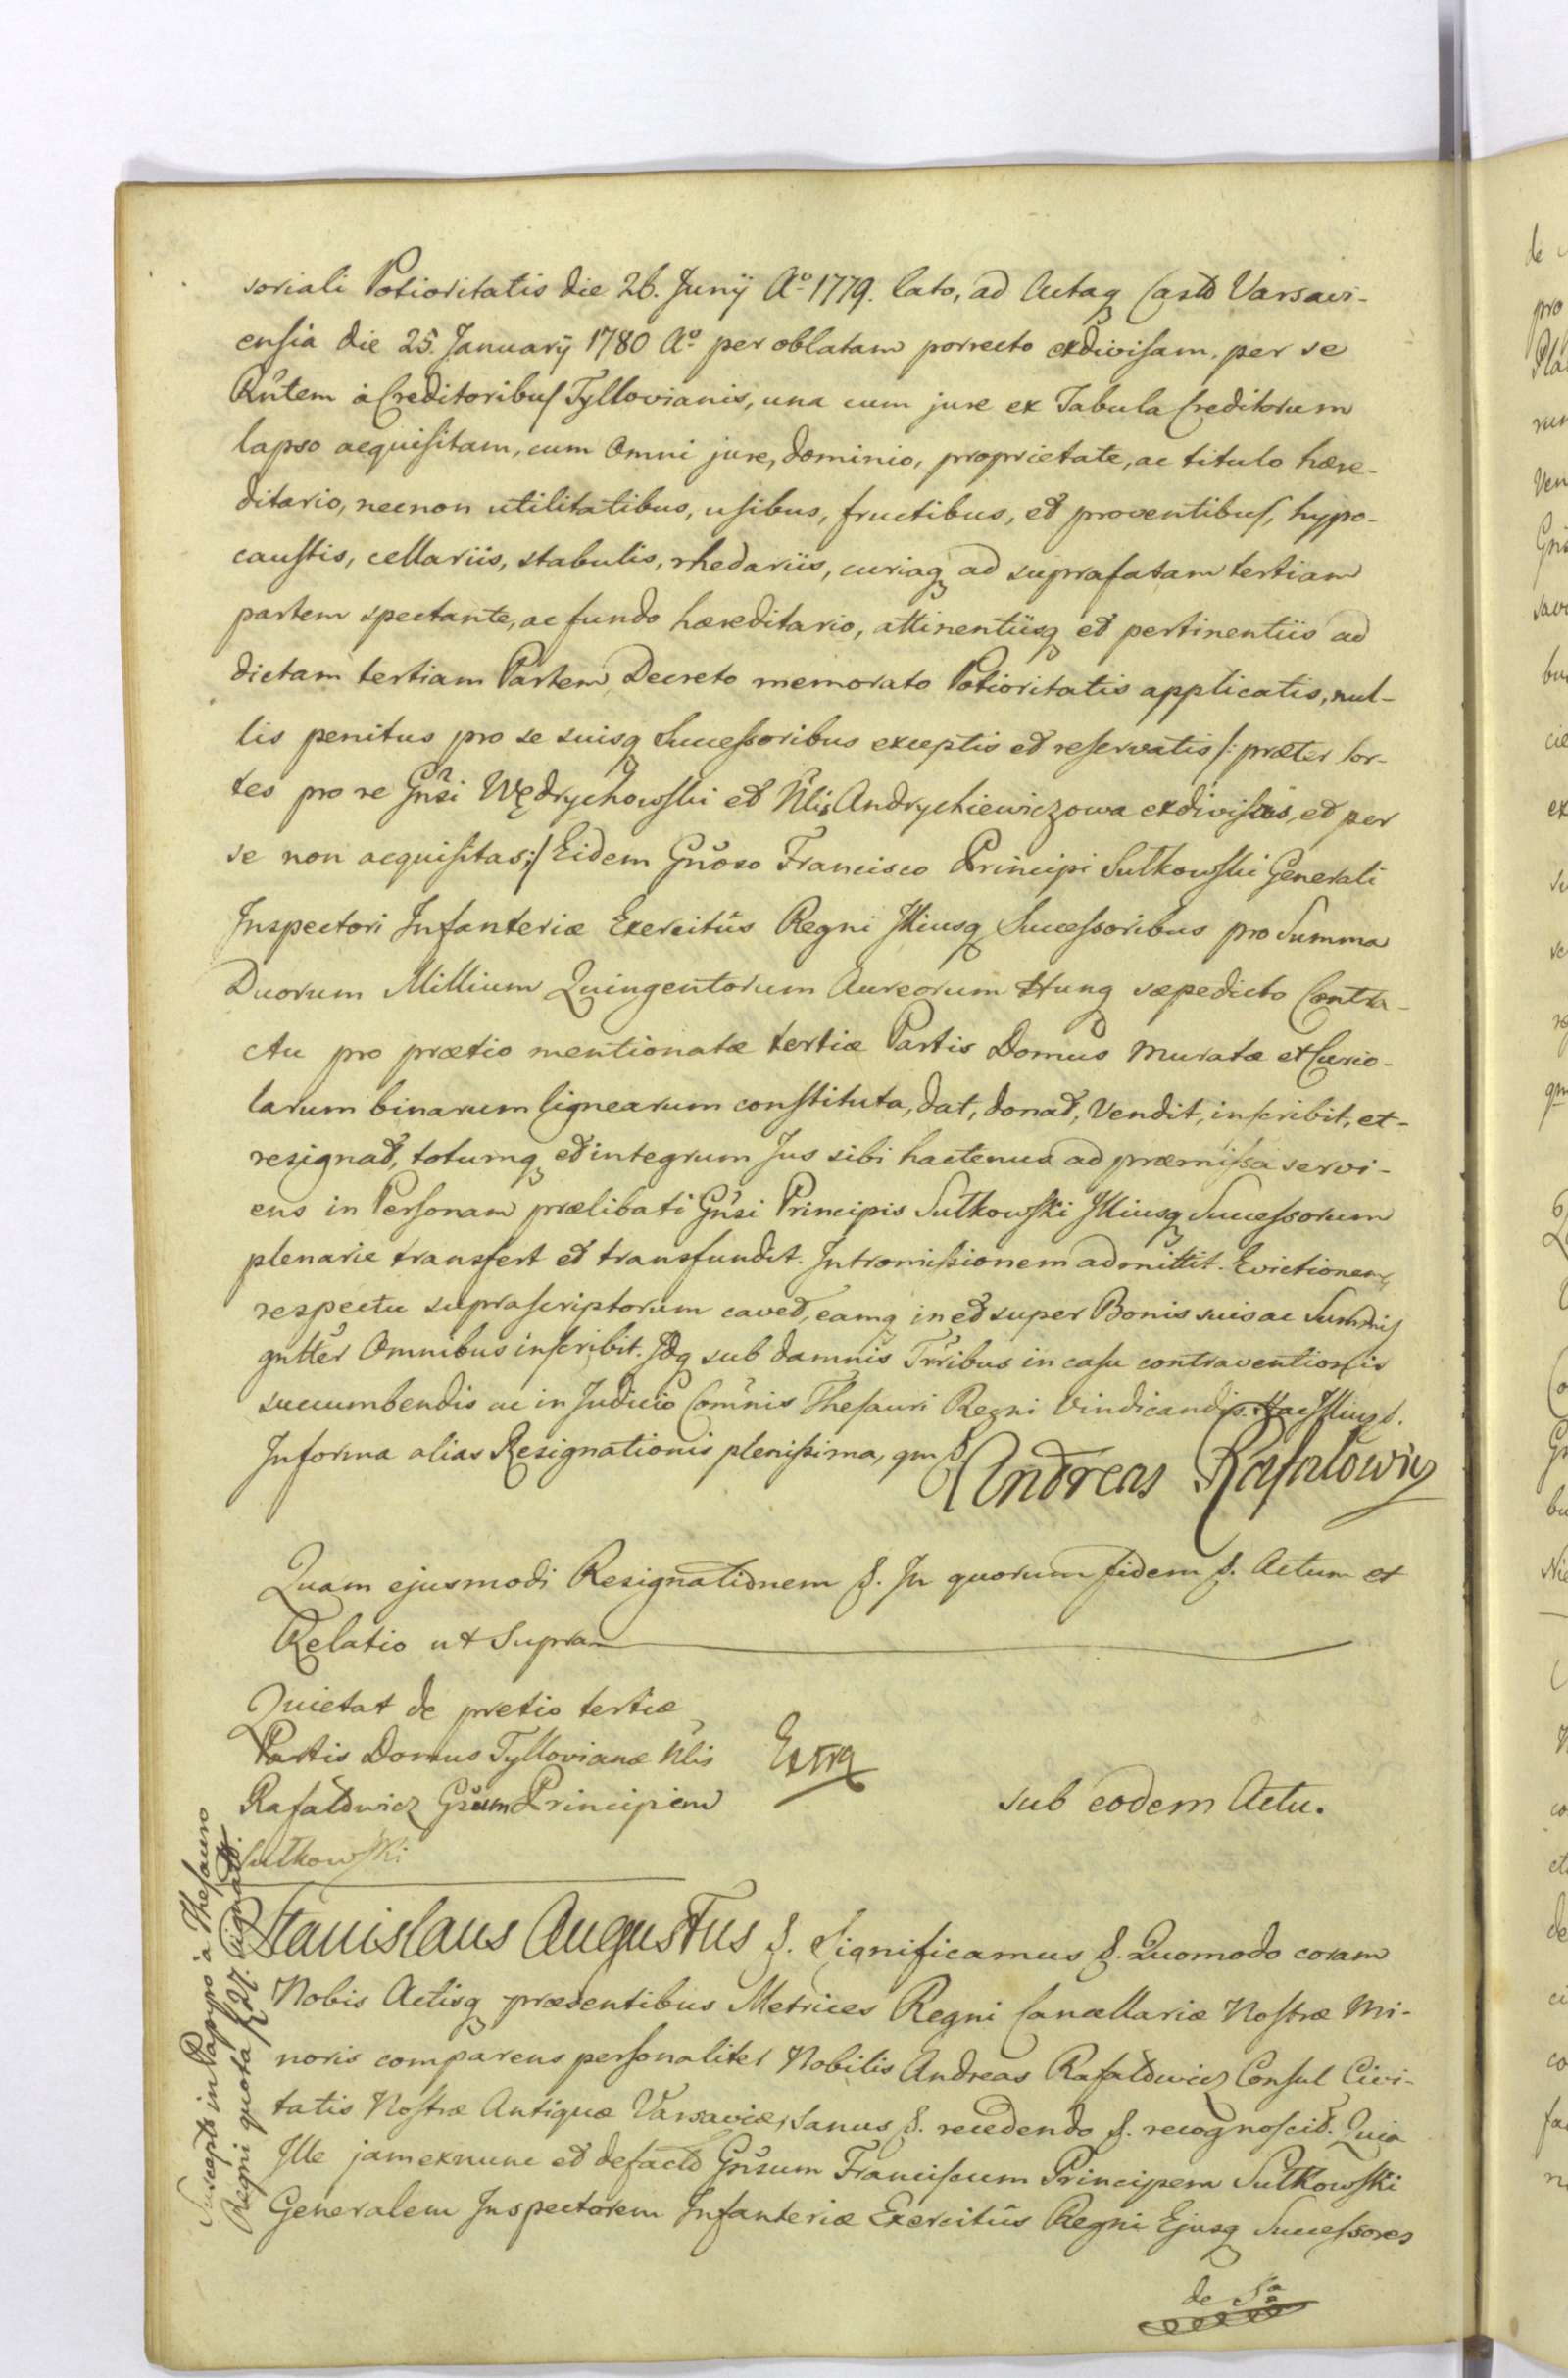 soriali Potioritatis die 26. Junÿ Aº 1779. lato, ad Actaq Castr Varsavi-
ensia die 25. Januarÿ 1780 Aº per oblatam porrecto exdivisam, per se
Rñtem à Creditoribus Tyllovianis, una cum jure ex Tabula Creditorum
lapso acquisitam, cum Omni jure, dominio, proprietate, ac titulo hære-
ditario, necnon utilitatibus, usibus, fructibus, et proventibus, hypo-
caustis, cellariis, stabulis, rhedariis, curiaq ad suprafatam tertiam
partem spectante, ac fundo hæreditario, attinentiisq et pertinentiis ad
dictam tertiam Partem Decreto memorato Potioritatis applicatis, nul-
lis penitus pro se suisq Successoribus exceptis et reservatis /: præter sor-
tes pro re Gñsi Wędrychowski et Nlis Andrychiewiczowa exdivisas, et per
se non acquisitas :/ Eidem Gñoso Francisco Principi Sułkowski Generali
Inspectori Infanteriæ Exercitûs Regni Illiusq Successoribus pro Summa
Duorum Millium Quingentorum Aureorum Hung sæpedicto Contra-
ctu pro prætio mentionatæ tertiæ Partis Domus Muratæ et Curio-
larum binarum lignearum constituta, dat, donat, Vendit, inscribit, et
resignat, totumq et integrum Jus sibi hactenus ad præmissa servi-
ens in Personam prælibati Gñsi Principis Sułkowski Illiusq Successorum
plenarie transfert et transfundit. Intromissionem admittit. Evictionem
respectu suprascriptorum cavet, eamq in et super Bonis suis ac Summis
gnttêr Omnibus inscribit. Idq sub damnis Trribus in casu contraventionis
succumbendis ac in Judicio Comñis Thesauri Regni Vindicandis. Hac Illius &.
Informa alias Resignationis plenissima, qm &. Andreas Rafałowicz
Quam ejusmodi Resignationem &. In quorum fidem &. Actum et
Relatio ut Supra
Quietat de pretio tertiæ
Partis Domus Tyllovianæ Nlis
Rafałowicz Gsum Principem
Sułkowski
Extra
sub eodem Actu.
Susceptr in Papyro à Thesauro
Regni quota
Stanislaus Augustus &. Significamus &. Quomodo coram
Nobis Actisq præsentibus Metrices Regni Cancellariæ Nostræ Mi-
noris comparens personaliter Nobilis Andreas Rafałowicz Consul Civi-
tatis Nostræ Antiquæ Varsaviæ, sanus &. recedendo &. recognoscit. Quia
Ille jam exnunc et defacto Gñsum Franciscum Principem Sułkowski
Generalem Inspectorem Infanteriæ Exercitûs Regni Ejusq Successores
de Sa